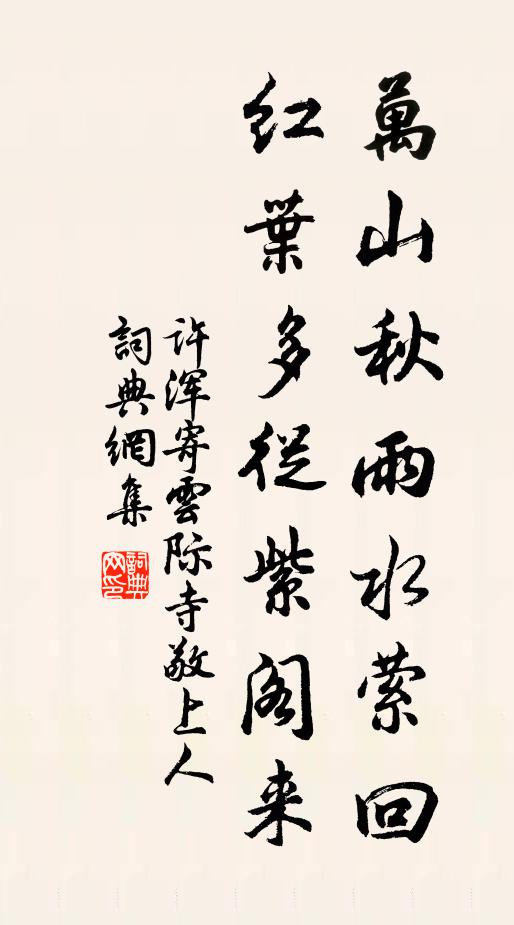 萬山秋雨水萦回
红葉多從紫阁来
许浑寄雲际寺敬上人
詞典網集
詞典網印